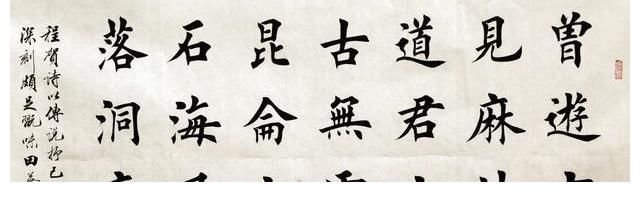 曾遊
見麻
道君
古無
昆侖
石海
落洞
程賀詩以傳説抒己
深刻頗足翫味田